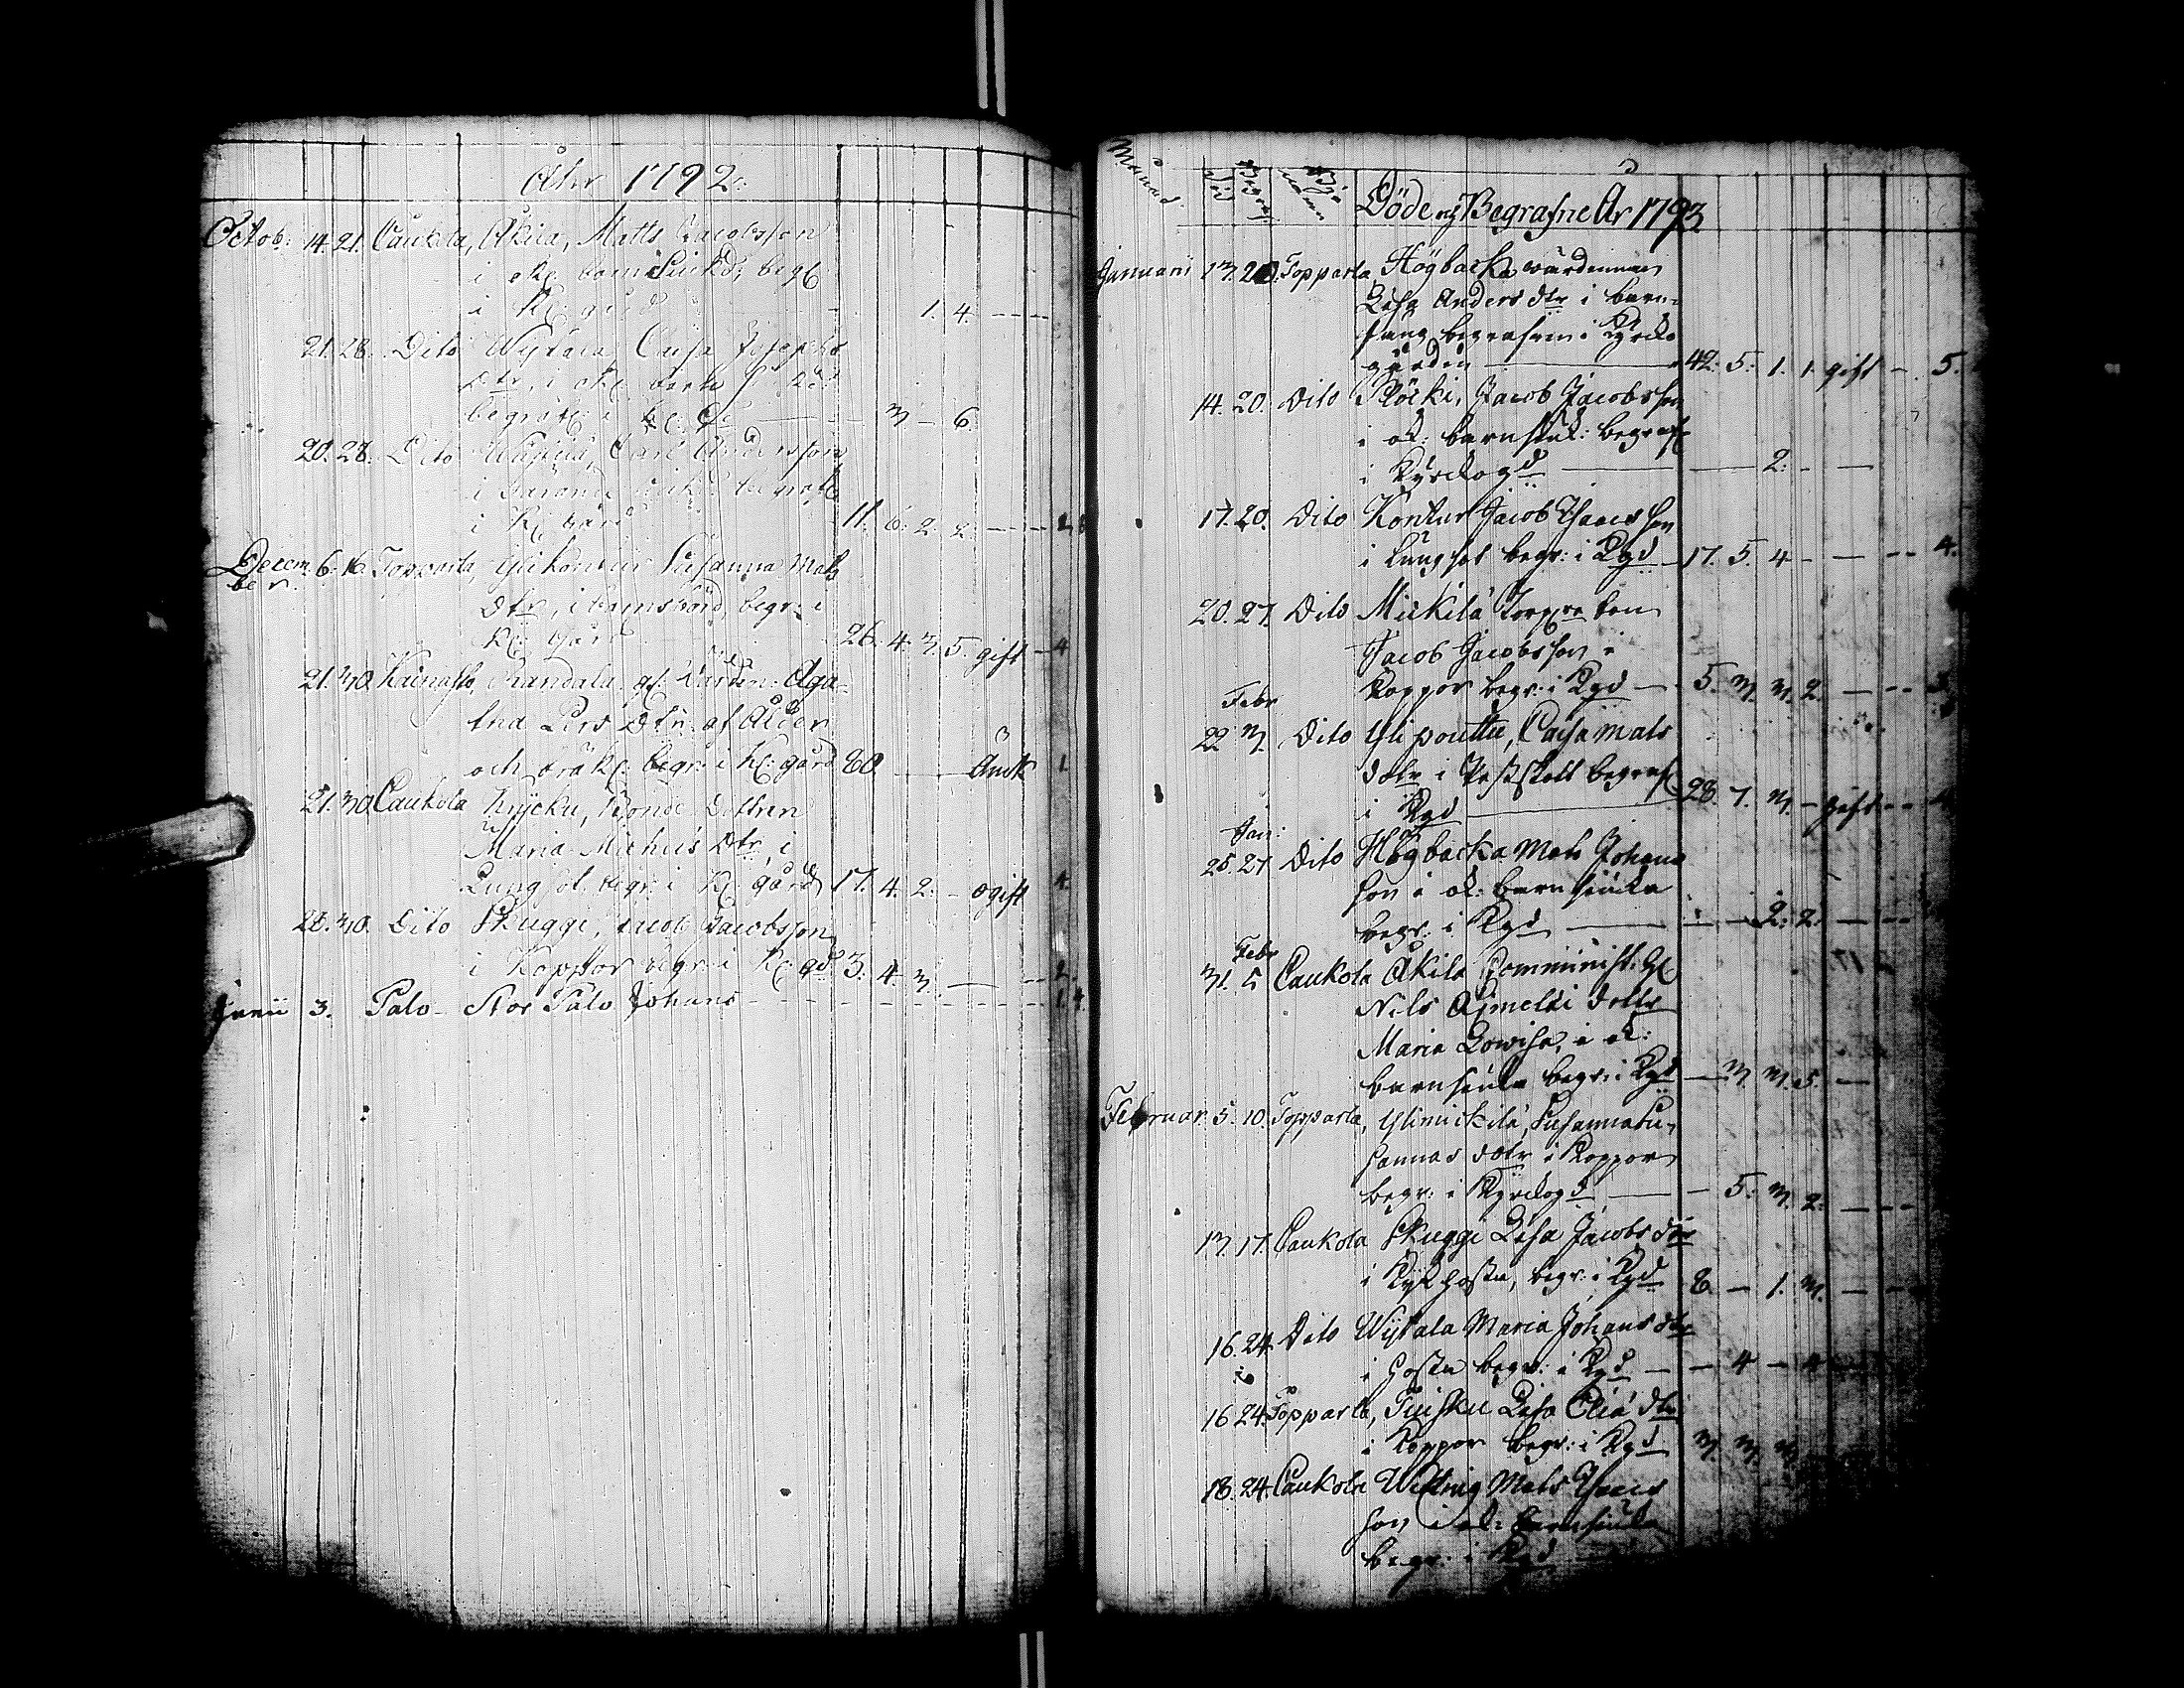 Åhr 1792.
Octob: 14. 21. Caukola, Åkila, Matts Jacobsson
i ok: barnsiukd, begr
i K: gård 1. 4.
21. 28. Dito Wijtala Caisa Josephs
dtr, i ok:
begrafv: i K: gd 3 - 6.
20. 28. Dito Carl Andersson
i begrafv
i K: gård 11. 6. 2. 2. 2
Decem 6. 16 Topparla, Ylikonttu Susanna Mats
ber.
dtr, i barnsbörd, begr: i
K: gård 26. 4. 3. 5. gift - 4
21. 30. Kainasto, Prandala gl: Värdin: Aga-
tha Pers dtr: af Ålder
och bräkl: begr: i K: gård 80 Änck 1
21. 30. Caukola Knycku, Bonde Dottren
Maria Michels Dtr, i
Lungsot, begr: i K: gård 17. 4. 2. - ogift 4.
28. 30. Dito Skuggi, Jacob Jacobsson
i Koppor begr: i K: gd. 3. 4. 3. - 2.
Junii 3. Palo - Stor Palo Johans - 1. 4.
Månad
Död
Begraf
Döde och Begrafne År 1793
Januarii 13. 20. Topparla Högbacka wärdinnan
Lisa Anders dtr i barn-
säng begrafven i Kyrcko
gården 42. 5. 1. 1. gift - 5.
14. 20. Dito Plöcki, Jacob Jacobsson
i ok: barnsiuk: begraf
i Kyrckogd - 2. -
17. 20. Dito Konttu Jacob Isaacsson
i Lungsot begr: i Kgd 17. 5. 4 - 4.
20. 27. Dito Mickilä Torp son
Jacob Jacobsson i
Koppor begr: i Kgd - 5. 3. 3. 2. - 3.
Febr
22 3 Dito Ylipouttu, Caisa Mats
dotr i begraf
i Kgd 28. 7. 3. - gift -
Jan:
25. 27 Dito Högbacka Mats Johans
son i ok: barnsiuka
begr: i Kgd - 2. 2. -
Febr
31. 5 Caukola Åkila Comminist:
Nils Aejmelaei dottr
Maria Lowisa, i ok:
barnsiuka begr: i Kgd - 3. 3. 5. -
Februar. 5. 10. Topparla, Ylimickilä, Susanna Su-
sannas dotr i Koppor
begr: i Kyrckogd - 5. 3. 2. -
13. 17. Caukola Skuggi Lisa Jacobs dtr
i Kikhosta, begr: i Kgd 8. - 1. 3. -
16. 24. Dito Wijtala Maria Johans dtr
i hosta begr: i Kgd - 4 - 4
16 24. Topparla, Tuisku Lisa Eliä dtr
i Koppor begr: i Kgd 3. 3. 3.
18. 24. Caukola Witting Mats Isaacs
son i ok: barnsiuka
begr: i Kgd